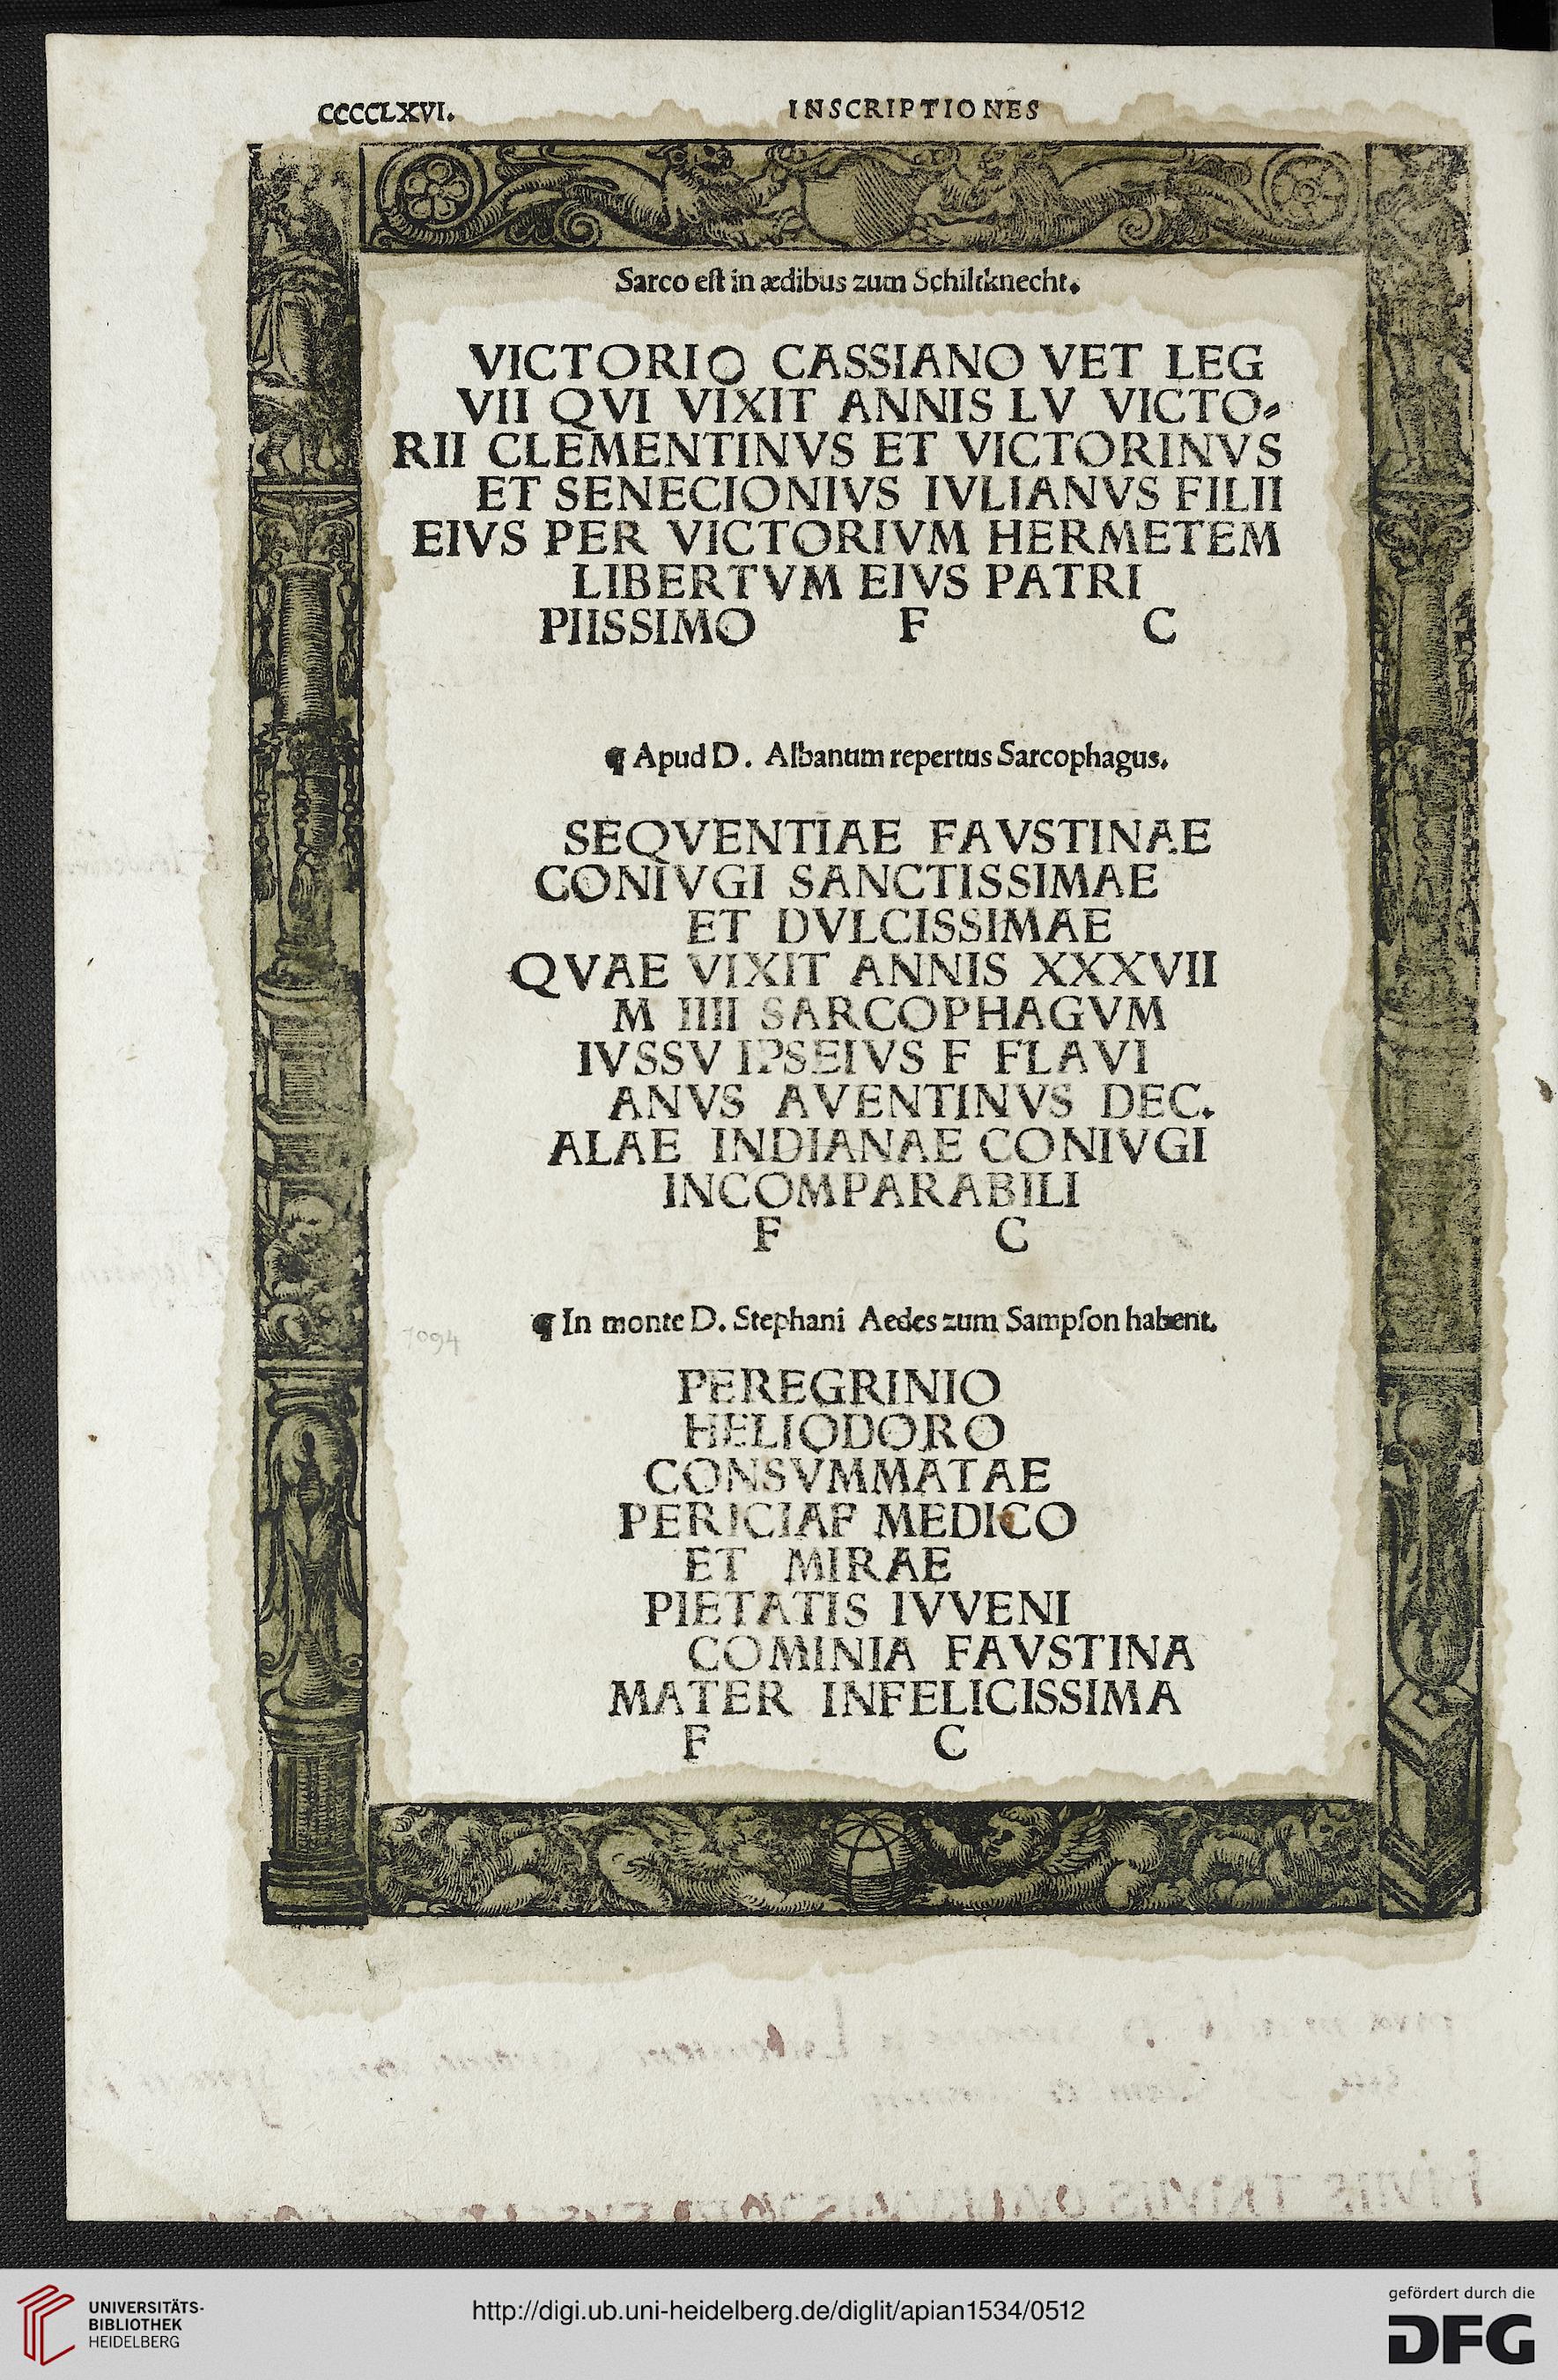 CCCCCLXVI. INSCRIPTIONES
Sarco eſt in ædibus zum Schiltknecht.
VICTORIO CASSIANO VET LEG
VII QVI VIXIT ANNIS LV VICTO-
RII CLEMENTINVS ET VICTORINVS
ET SENECIONIVS IVLIANVS FILII
EIVS PER VICTORIVM HERMETEM
LIBERTVM EIVS PATRI
PIISSIMO F C
¶ Apud D. Albanum repertus Sarcophagus.
SEQVENTIAE FAVSTINAE
CONIVGI SANCTISSIMAE
ET DVLCISSIMAE
QVAE VIXIT ANNIS XXXVII
M IIII SARCOPHAGVM
IVSSV IPSEIVS F FLAVI
ANVS AVENTINVS DEC.
ALAE INDIANAE CONIVGI
INCOMPARABILI
F C
¶ In monte D. Stephani Aedes zum Sampſon habent.
7094
PEREGRINIO
HELIODORO
CONSVMMATAE
PERICIAF MEDICO
ET MIRAE
PIETATIS IVVENI
COMINIA FAVSTINA
MATER INFELICISSIMA
F C
UNIVERSITÄTS-
BIBLIOTHEK
HEIDELBERG
http://digi.ub.uni-heidelberg.de/diglit/apian1534/0512
gefördert durch die
DFG